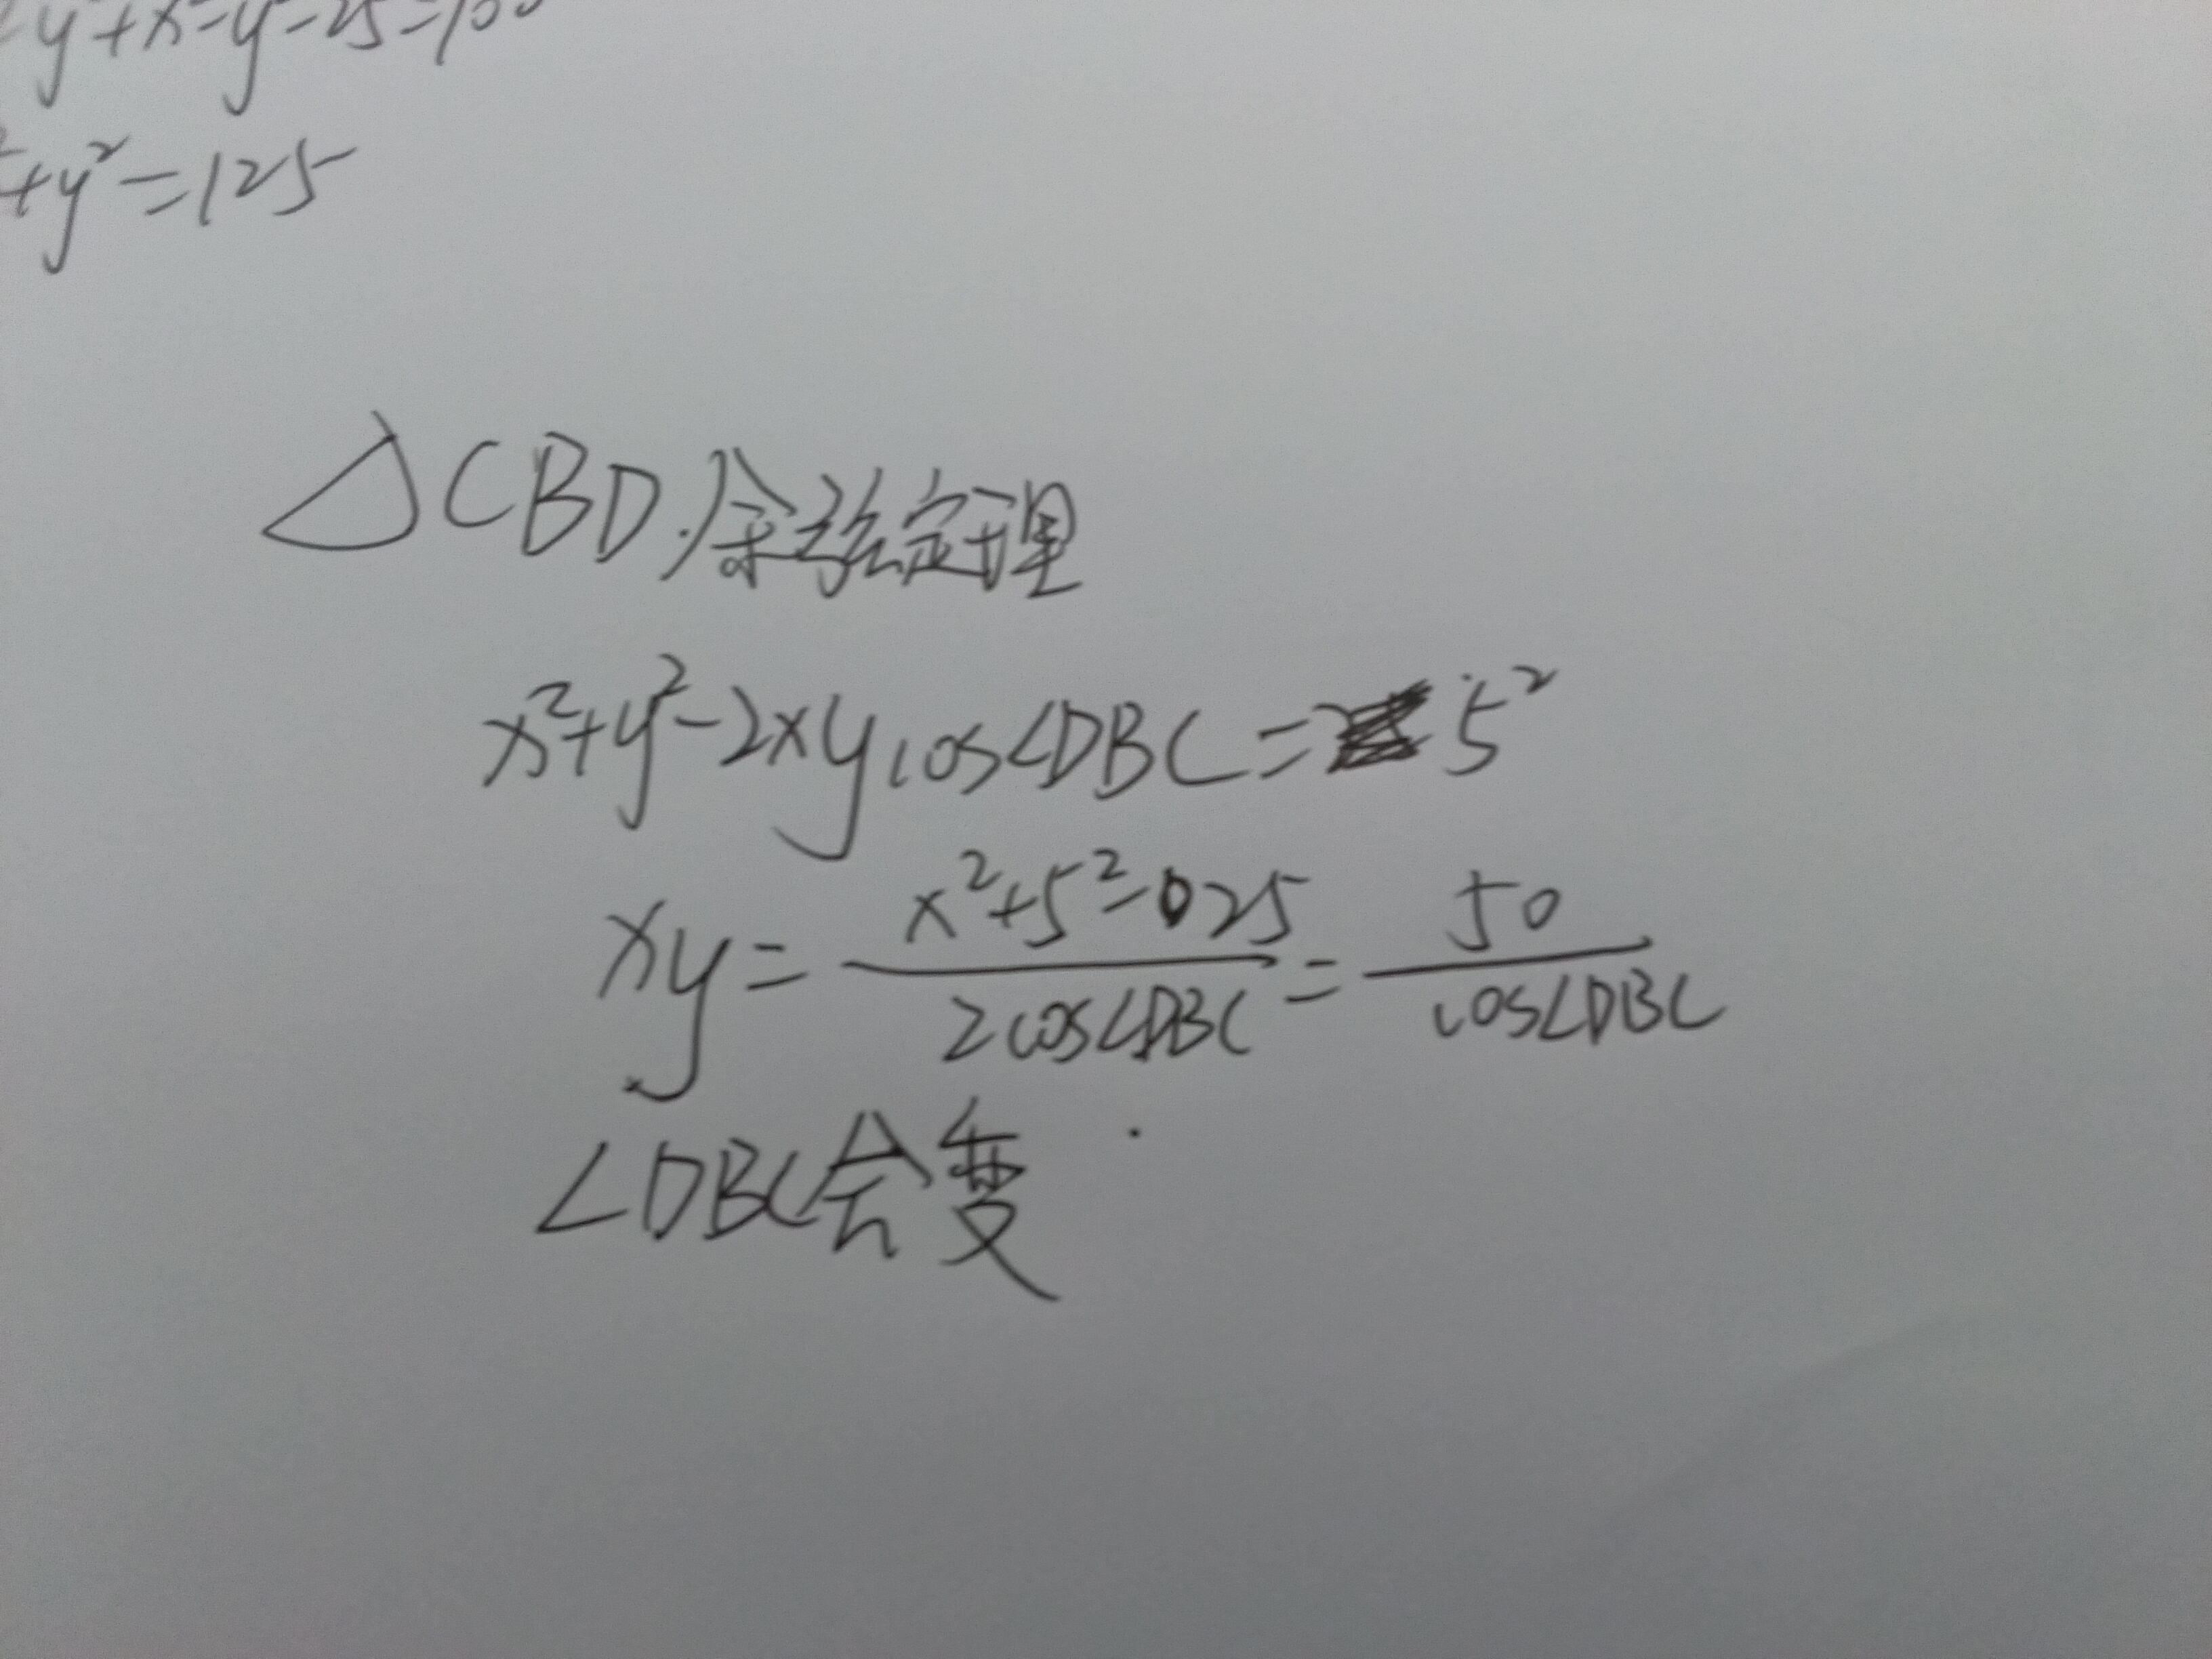 y²+x²-y²-25=100
+y²=125
△CBD.余弦定理
x²+y²-2xycos∠DBC=5²
xy=\frac{x²+5²-025}{2cos∠DBC}=\frac{50}{cos∠DBC}
∠DBC会变